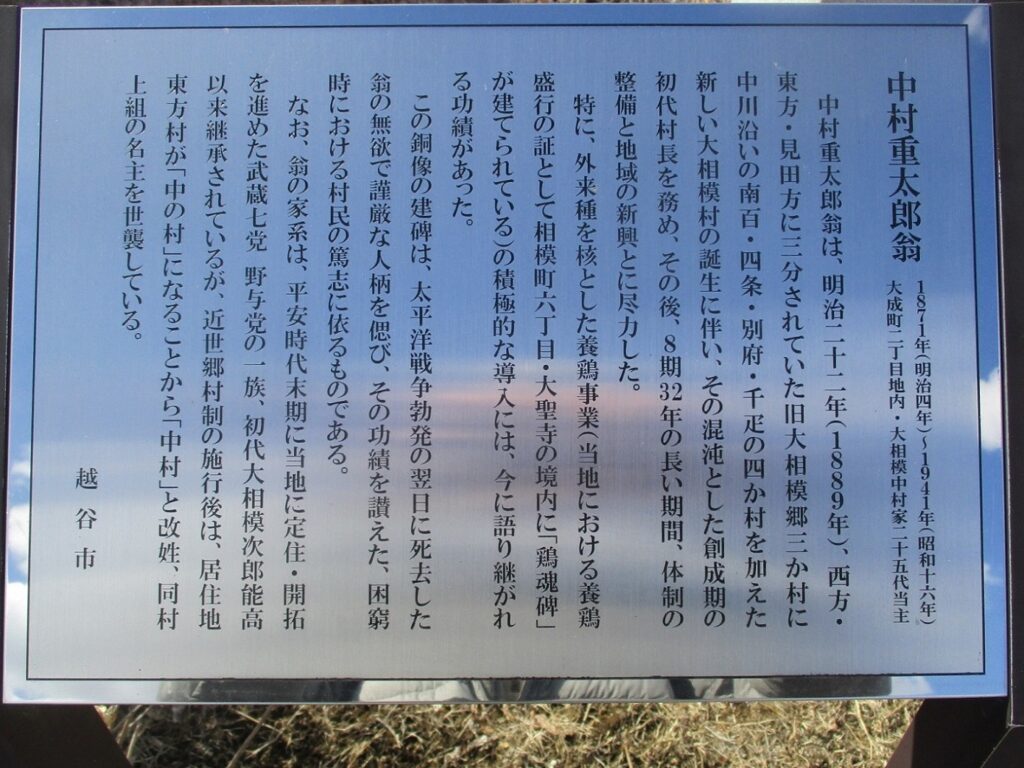 中村重太郎翁
1871年(明治四年)~1941年(昭和十六年)
大成町二丁目地内・大相模中村家二十五代当主
中村重太郎翁は、明治二十二年(1889年)、西方・
東方・見田方に三分されていた旧大相模郷三か村に
中川沿いの南百・四条・別府・千疋の四か村を加えた
新しい大相模村の誕生に伴い、その混沌とした創成期の
初代村長を務め、その後、8期32年の長い期間、体制の
整備と地域の新興とに尽力した。
特に、外来種を核とした養鶏事業(当地における養鶏
盛行の証として相模町六丁目・大聖寺の境内に「鶏魂碑」
が建てられている)の積極的な導入には、今に語り継がれ
る功績があった。
この銅像の建碑は、太平洋戦争勃発の翌日に死去した
翁の無欲で謹厳な人柄を偲び、その功績を讃えた、困窮
時における村民の篤志に依るものである。
なお、翁の家系は、平安時代末期に当地に定住・開拓
を進めた武蔵七党 野与党の一族、初代大相模次郎能高
以来継承されているが、近世郷村制の施行後は、居住地
東方村が「中の村」になることから「中村」と改姓、同村
上組の名主を世襲している。
越谷市